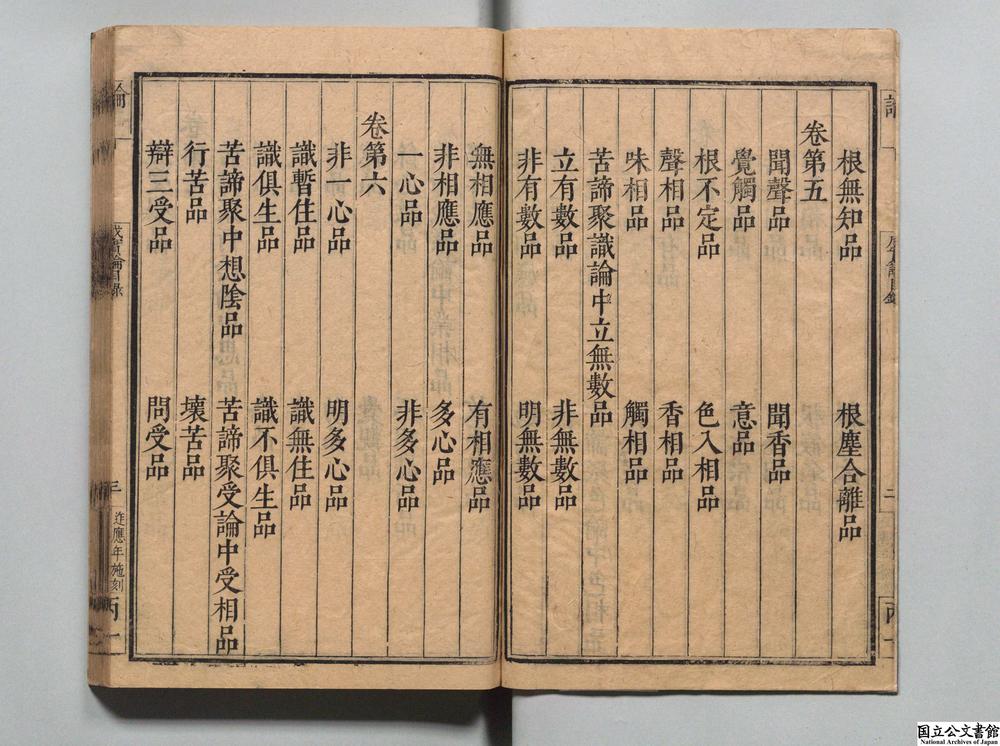 根無知品 根塵合離品
卷第五
聞聲品 聞香品
覺觸品 意品
根不定品 色入相品
聲相品 香相品
味相品 觸相品
苦諦聚識論中立無數品
立有數品 非無數品
非有數品 明無數品
無相應品 有相應品
非相應品 多心品
一心品 非多心品
卷第六
非一心品 明多心品
識暫住品 識無住品
識俱生品 識不俱生品
苦諦聚中想陰品 苦諦聚受論中受相品
行苦品 壞苦品
辯三受品 問受品
三
應年施刻
国立公文書館
National Archives of Japan